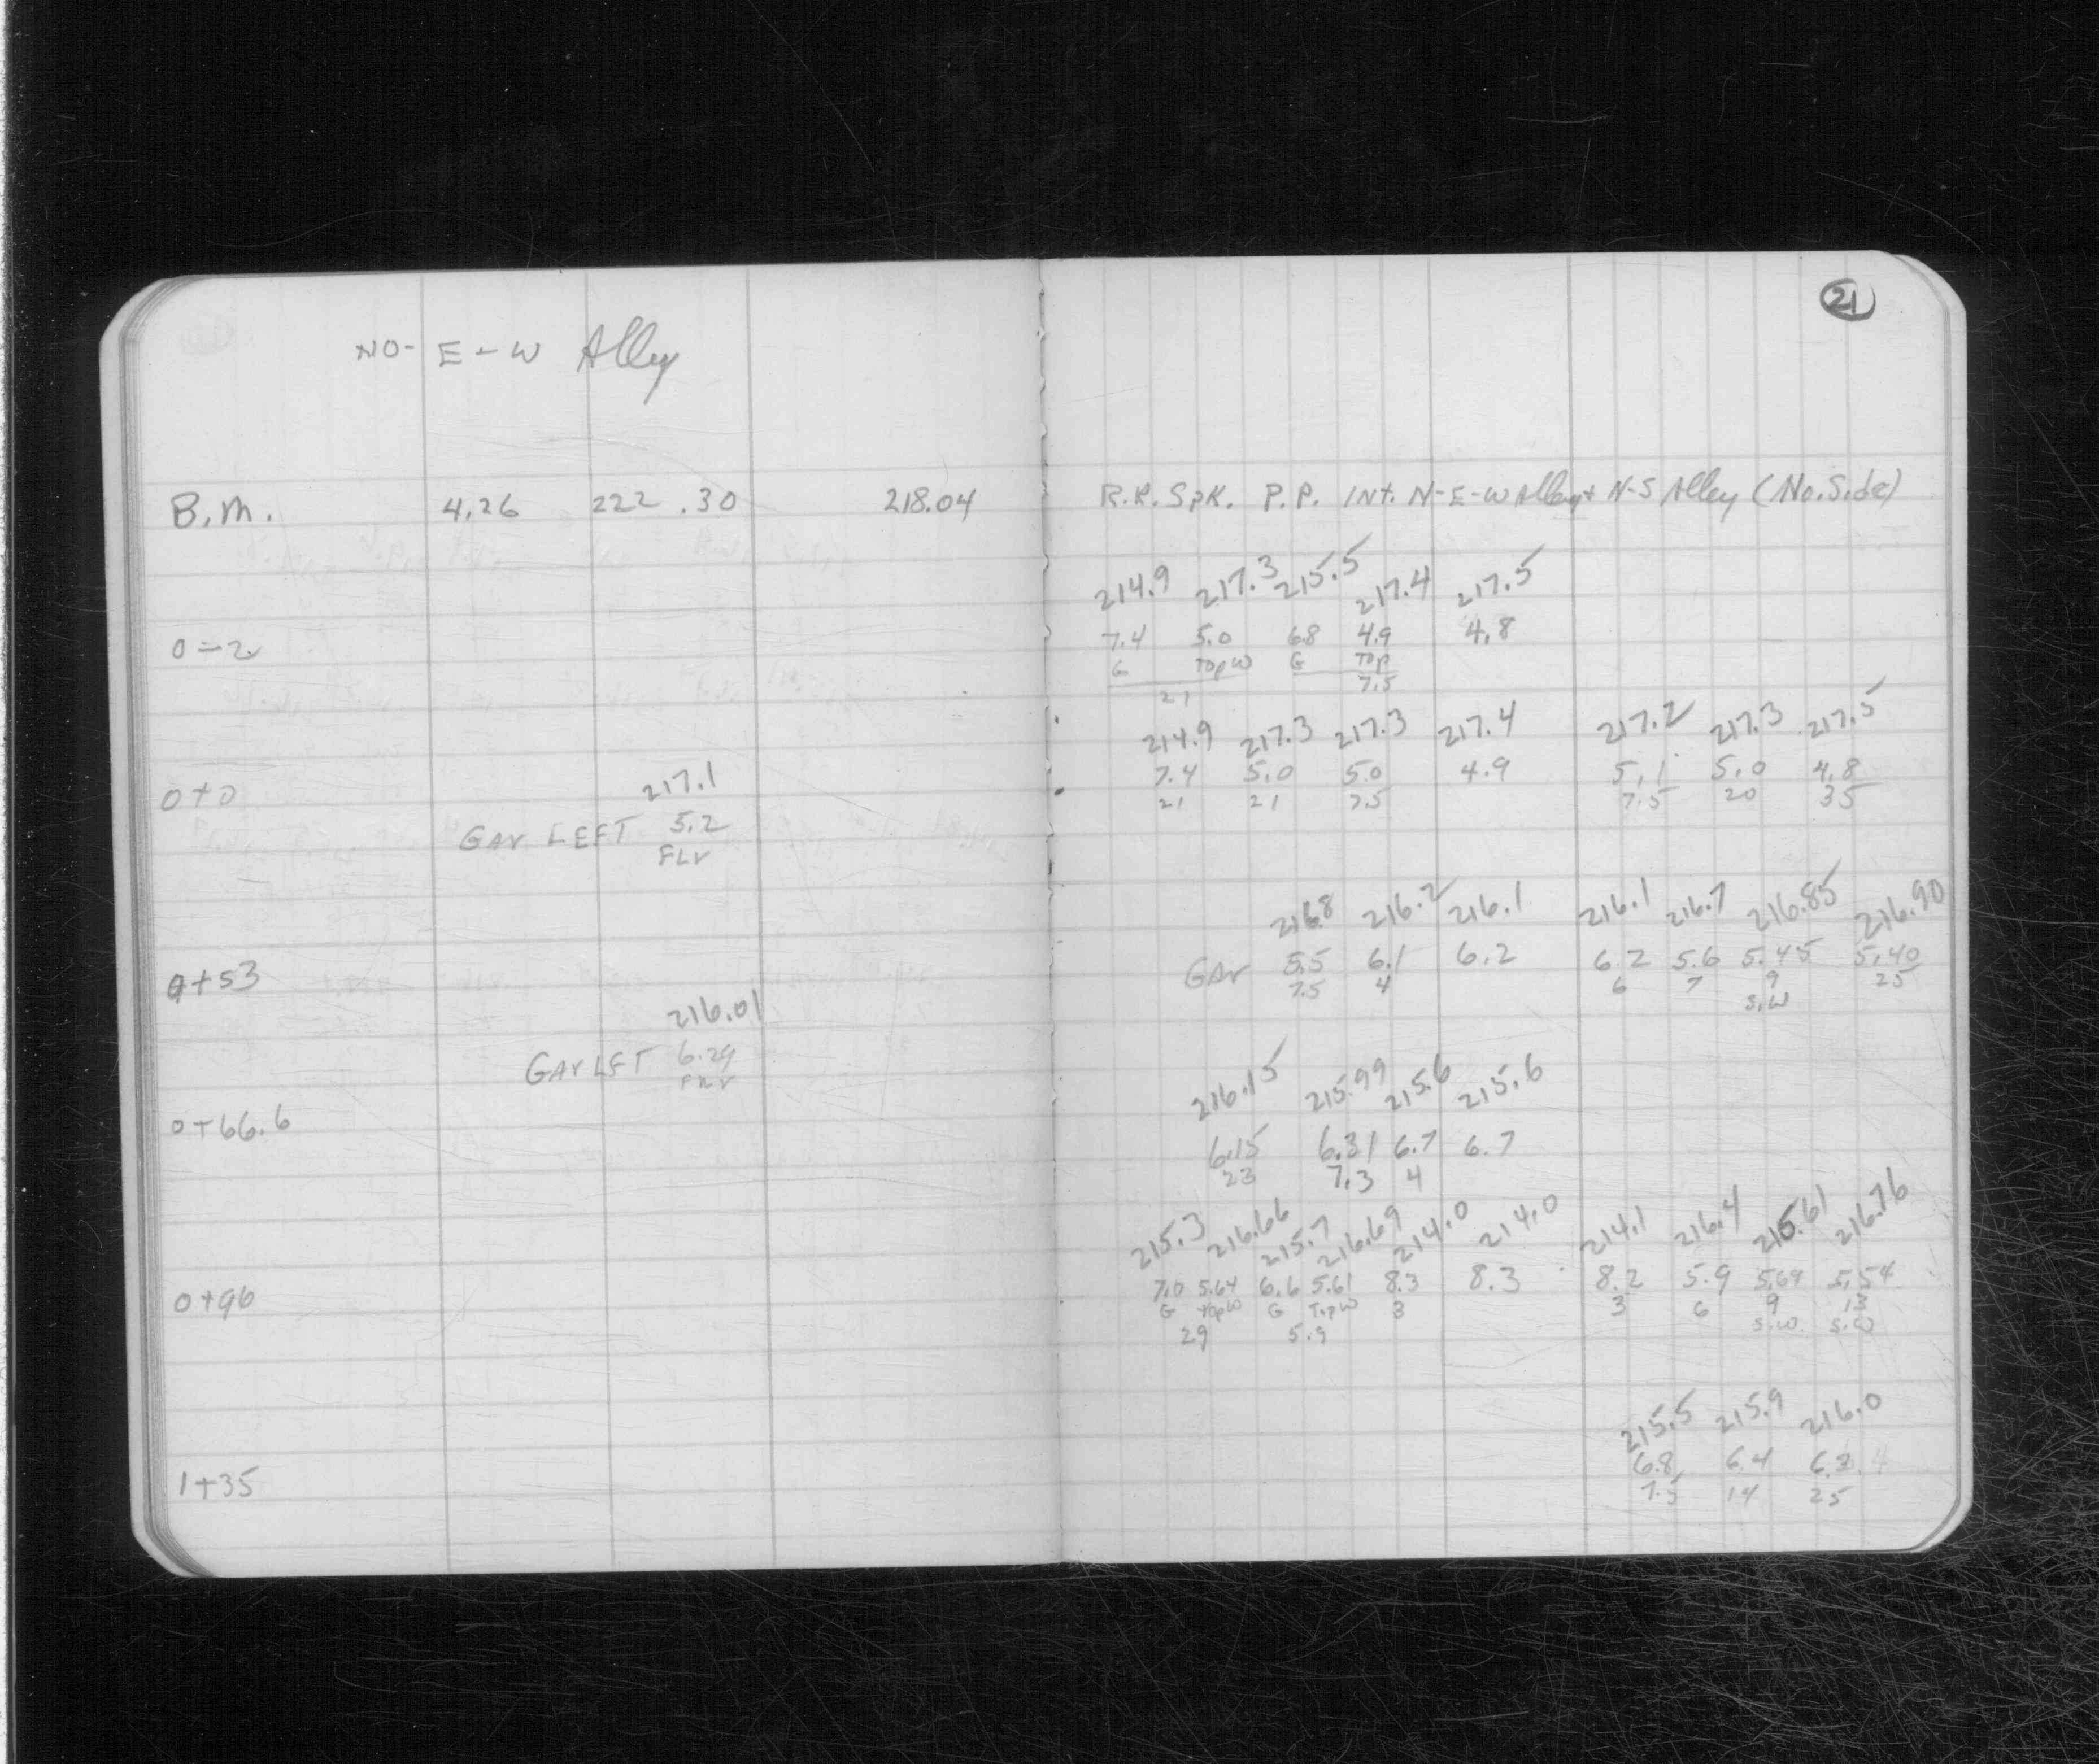 21
NO- E-W Alley
B.M. 4.26 222.30 218.04 R.R. Spk. P.P. Int. N-E-W Alley + N-S Alley (No. Side)
214.9 217.3 215.5 217.4 217.5
0-2 7.4 5.0 6.8 4.9 4.8
G Top W G Top
21 7.5
214.9 217.3 217.3 217.4 217.2 217.3 217.5
0+0 217.1 7.4 5.0 5.0 4.9 5.1 5.0 4.8
21 21 7.5 7.5 20 35
Gar LEFT 5.2
FLr
216.8 216.2 216.1 216.1 216.7 216.85 216.90
0+53 Gar 5.5 6.1 6.2 6.2 5.6 5.45 5.40
7.5 4 6 7 9 25
S.W
216.01
Gar LFT 6.29
FLr
216.15 215.99 215.6 215.6
0+66.6 6.15 6.31 6.7 6.7
23 7.3 4
215.3 216.66 215.7 216.69 214.0 214.0 214.1 216.4 216.61 216.76
0+96 7.0 5.64 6.6 5.61 8.3 8.3 8.2 5.9 5.69 5.54
G Top W G Top W 3 3 6 9 13
29 5.9 S.W. S.W
215.5 215.9 216.0
1+35 6.8 6.4 6.3
7.5 14 25